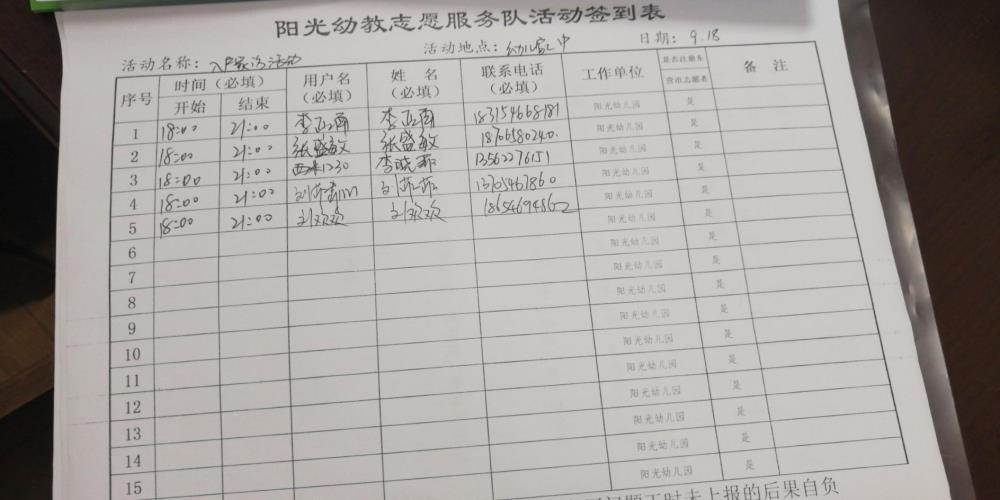 阳光幼教志愿服务队活动签到表
活动名称：入户家访活动 活动地点：幼儿家中 日期：9.18
序号 时间（必填） 用户名（必填） 姓名（必填） 联系电话（必填） 工作单位 是否注册东营市志愿者 备注
开始 结束
1 18:00 21:00 李亚南 李亚南 183154668181 阳光幼儿园 是
2 18:00 21:00 张盛敏 张盛敏 18706580240 阳光幼儿园 是
3 18:00 21:00 1230 李晓 13562276151 阳光幼儿园 是
4 18:00 21:00 刘菲菲 13705467860 阳光幼儿园 是
5 18:00 21:00 刘欢欢 刘欢欢 18654694862 阳光幼儿园 是
6 阳光幼儿园 是
7 阳光幼儿园 是
8 阳光幼儿园 是
9 阳光幼儿园 是
10 阳光幼儿园 是
11 阳光幼儿园 是
12 阳光幼儿园 是
13 阳光幼儿园 是
14 阳光幼儿园 是
15 阳光幼儿园 是
时未上报的后果自负